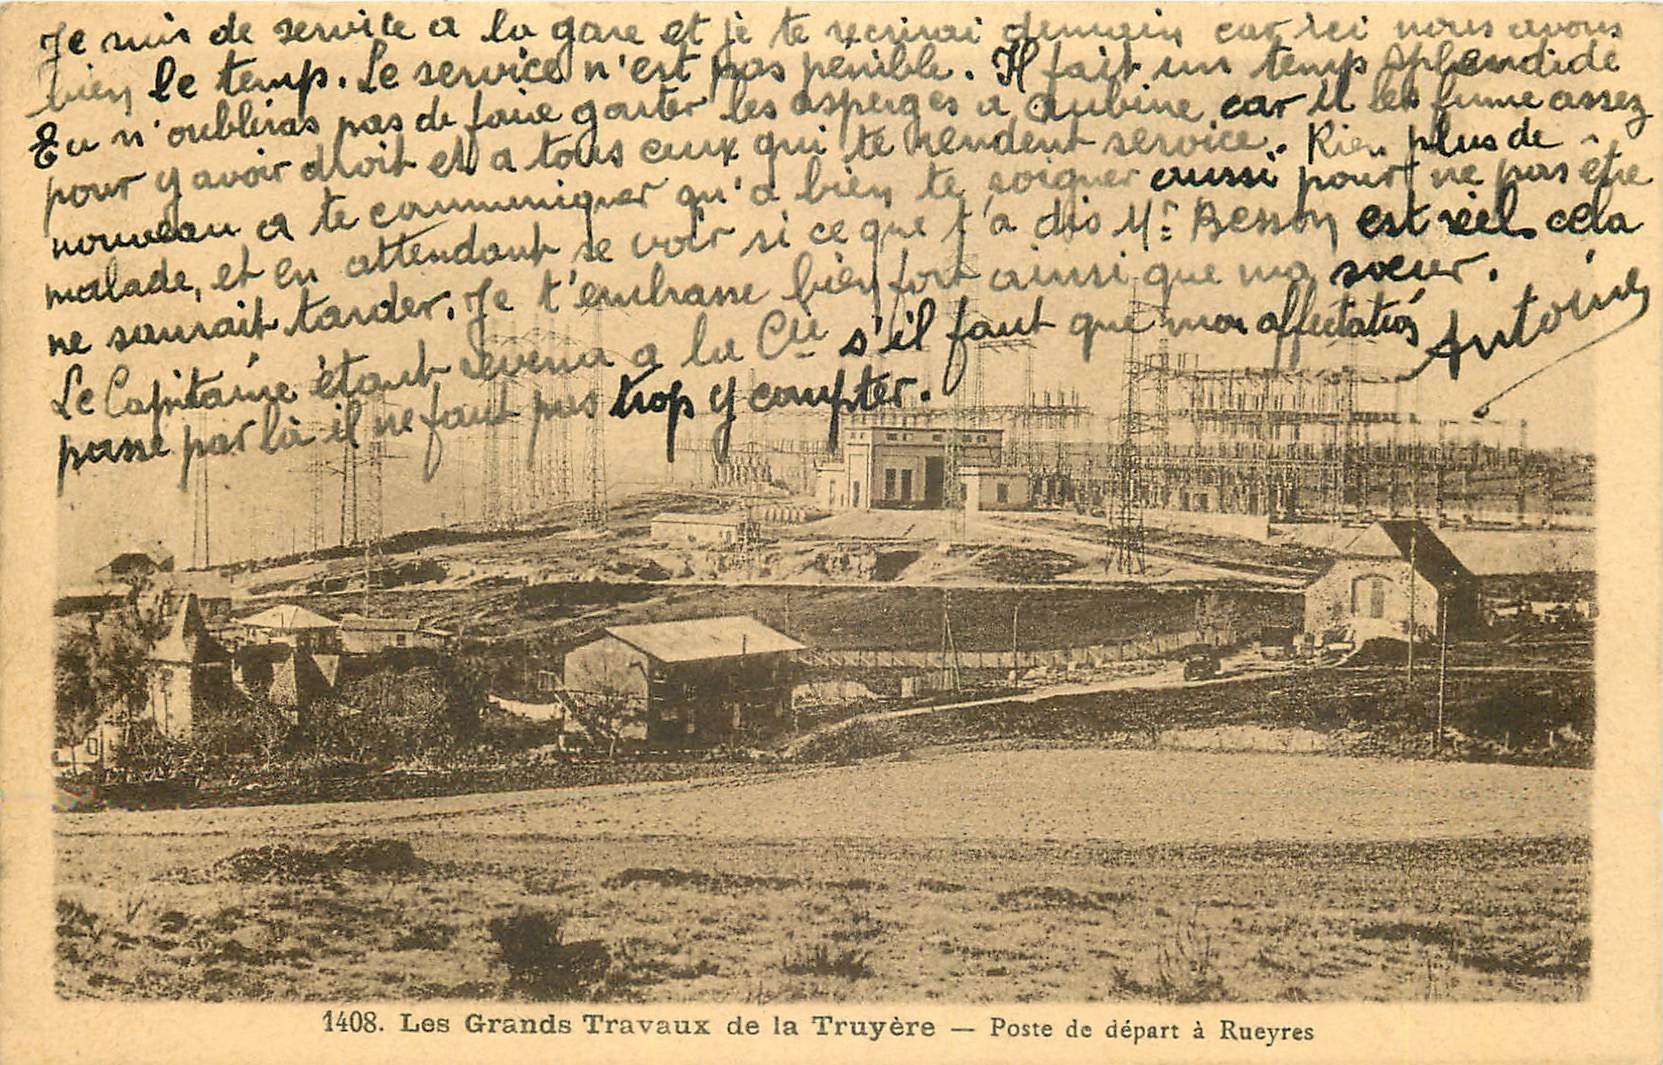 Je suis de service a la gare et je te récrirai demain car ici nous avons
bien le temp. Le service n'est pas pénible. Il fait un temps splendide
Tu n'oublieras pas de faire gouter les asperges a Aubine car il les fume assez
pour y avoir droit et a tous ceux qui te rendent service. Rien plus de
nouveau a te communiquer qu'a bien te soigner aussi pour ne pas être
malade, et en attendant se voir si ce que t'a dis Mr Besson est réel cela
ne saurait tarder. Je t'embrasse bien fort ainsi que ma sœur.
Antoine
Le Capitaine étant revenu a la Cie s'il faut que mon affectation
passe par là il ne faut pas trop y compter.
1408. Les Grands Travaux de la Truyère — Poste de départ à Rueyres